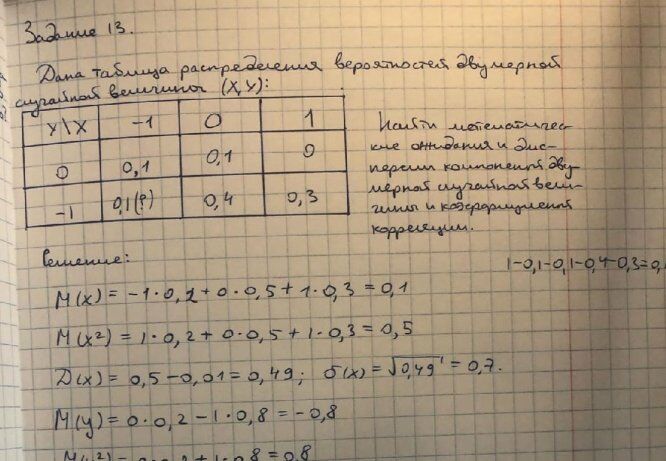 Задание 13.
Дана таблица распределения вероятностей двумерной
случайной величины (X,Y):
Y\X -1 0 1
0 0,1 0,1 0
-1 0,1(?) 0,4 0,3
Найти математичес-
кие ожидания и дис-
персии компонент дву-
мерной случайной вели-
чины и коэффициент
корреляции.
Решение:
1-0,1-0,1-0,4-0,3=0,
M(x) = -1·0,2 + 0·0,5 + 1·0,3 = 0,1
M(x²) = 1·0,2 + 0·0,5 + 1·0,3 = 0,5
D(x) = 0,5 - 0,01 = 0,49; σ(x) = √0,49 = 0,7.
M(y) = 0·0,2 - 1·0,8 = -0,8
1·0,8 = 0,8